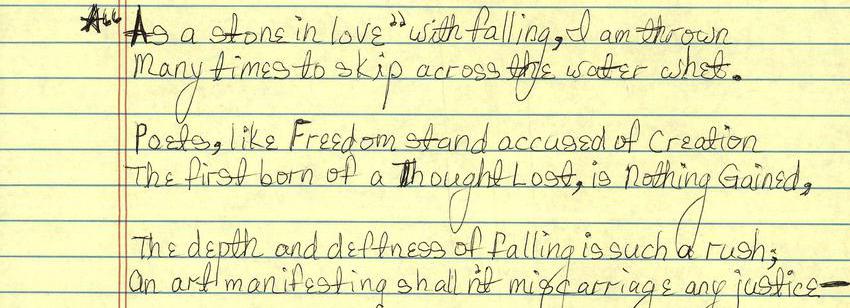 *A“ As a stone in love” with falling, I am thrown
Many times to skip across the water whet.
Poets, like Freedom stand accused of Creation
The first born of a Thought Lost, is Nothing Gained,
The depth and deftness of falling is such a rush;
An art manifesting shall n't miscarriage any justice—